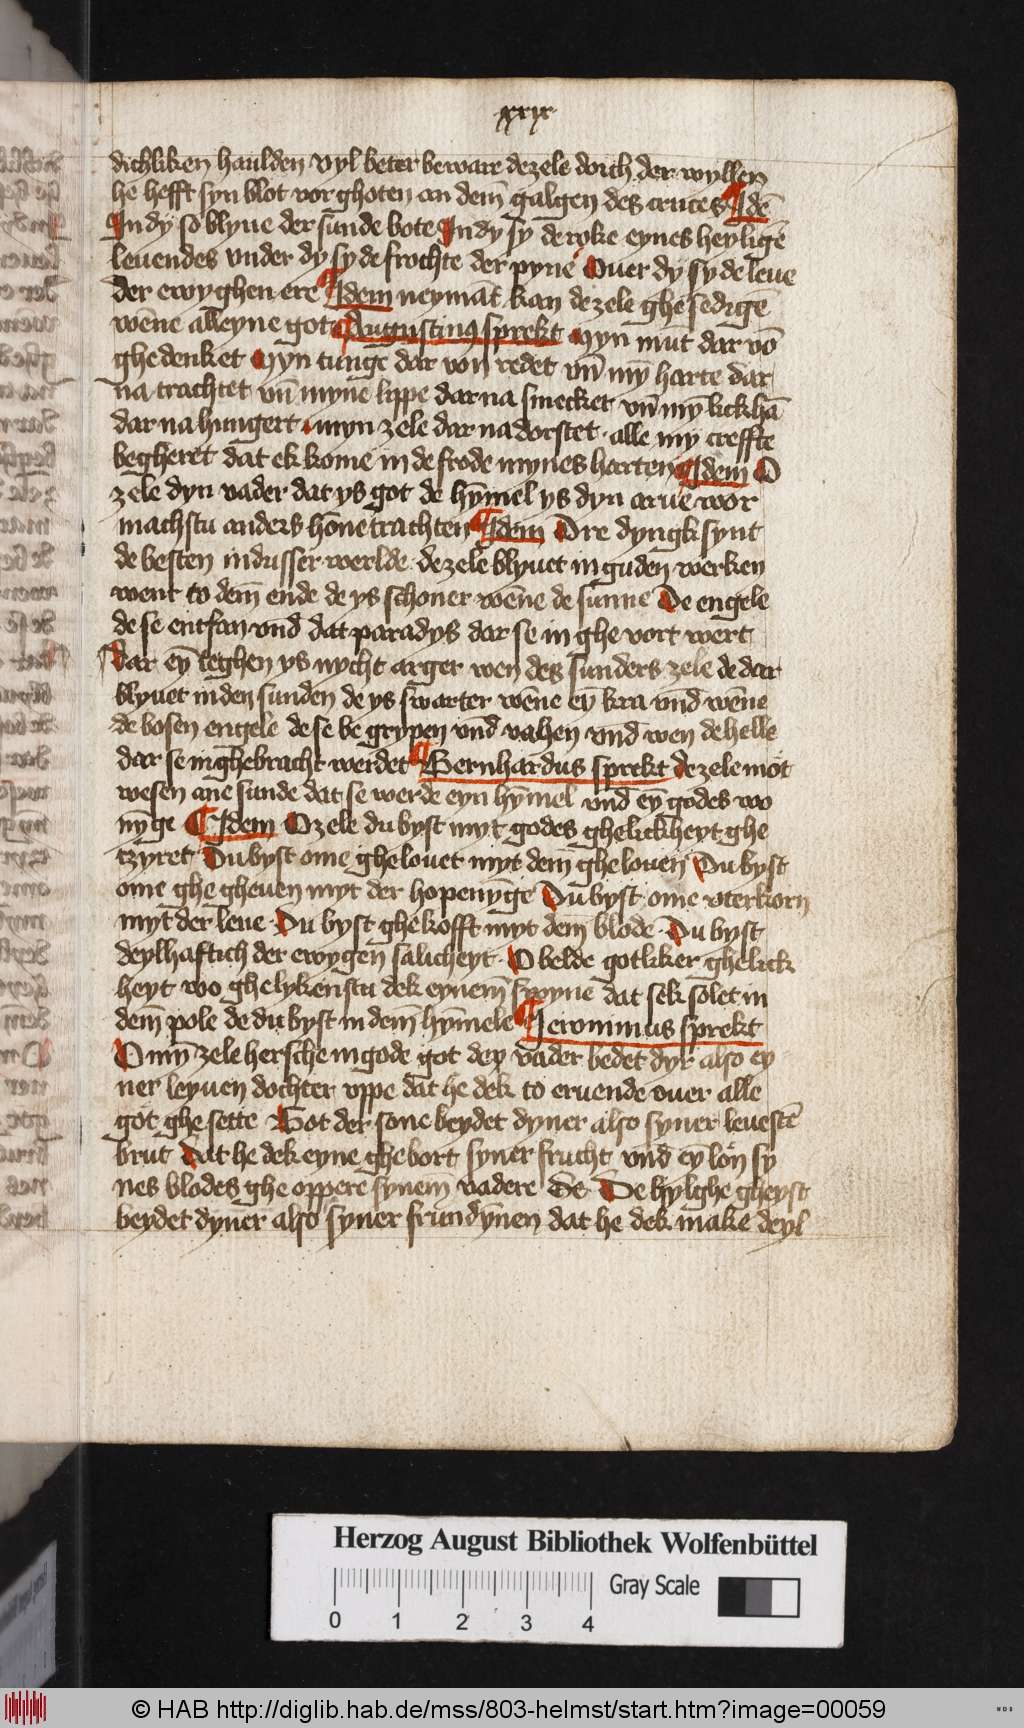 xxix
dichliken haulden vyl beter beware de zele dorch der wyllen
he hefft syn blot vor ghoten an dem̄ galgen des cruces Idē
In dy so blyue der sunde bote In dy sy de roke eynes heyligē
leuendes vnder dy sy de frochte der pyne Ouer dy sy de leue
der ewyghen ere Idem neymāt kan de zele ghe sedigē
wēne alleyne got Augustinus sprekt Myn mūt dar vō
ghedenket Myn tunge dar von redet vn̄ mȳ harte dar
na trachtet vn̄ myne lippe dar na smecket vn̄ mȳ lickhā
dar na hungert myn zele dar na dorstet · alle mȳ creffte
begheret dat ek kome in de frode mynes harten Idem O
zele dyn vader dat ys got de hȳmel ys dyn arue wor
machstu anders hōne trachten Idem Dre dyngk synt
de besten in dusser werlde · de zele blyuet in guden werken
went to dem̄ ende de ys schoner wēne de sunne De engele
de se entfan vnd dat paradys dar se in ghe vort wert
Dar eȳ teghen ys nycht arger wen des sunders zele de dar
blyuet in den sunden de ys swarter wēne eȳ kra vnd wēne
de bosen engele de se be grypen vnd vahen vnd wen de helle
dar se in ghebracht werdet Bernhardus sprekt de zele mot
wesen ane sunde dat se werde eyn hȳmel vnd eȳ godes wo
nȳge Idem O zele du byst myt godes ghelickheyt ghe
tzyret Du byst ome ghelouet myt dem̄ ghelouen Du byst
ome ghe gheuen myt der hopenȳge Du byst ome vterkorn
myt der leue · Du byst ghekofft myt dem̄ blode · Du byst
deylhafftich der ewygen salicheyt · O belde gotliker ghelick
heyt wo ghelykenstu dek eynem̄ swyne dat sek solet in
dem̄ pole de du byst in dem̄ hȳmele Jeronimus sprekt
O mȳ zele hersche in gode got dey vader bedet dyr also ey
ner leyuen dochter vppe dat he dek to eruende ouer alle
got ghe sette Got der sone beydet dyner also syner leuestē
brut Dat he dek eyne ghebort syner frucht vnd eȳ lon sy
nes blodes ghe oppere synem vadere De hylghe gheyst
beydet dyner also syner frundȳnen dat he dek make deyl
Herzog August Bibliothek Wolfenbüttel
Gray Scale
0 1 2 3 4
© HAB http://diglib.hab.de/mss/803-helmst/start.htm?image=00059